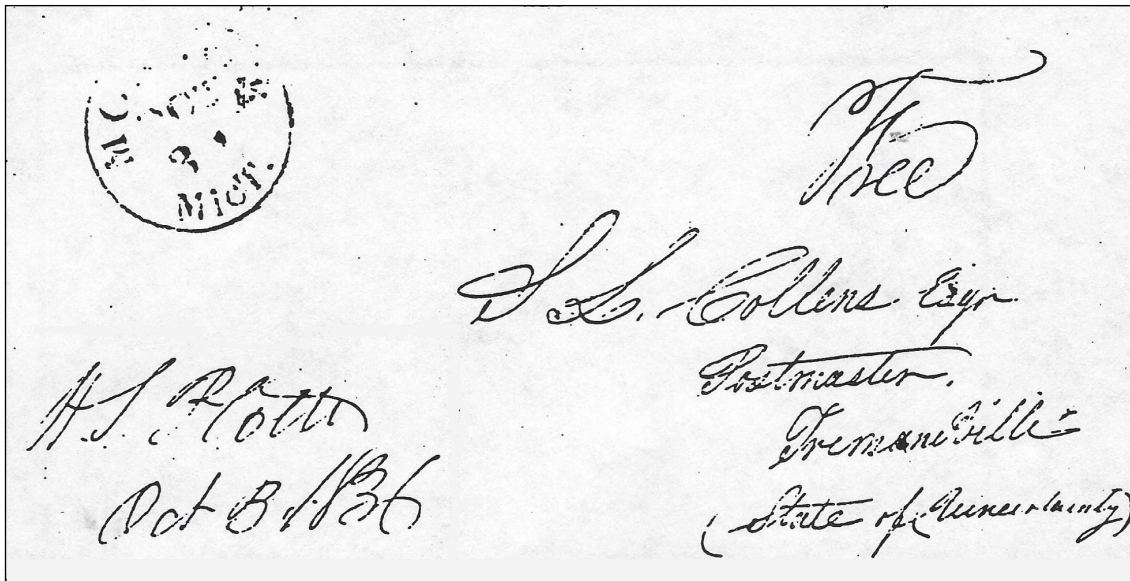 MICT.
Free
S. L. Collens Esqr
Postmaster.
Tremaneville
(State of Uncertainty)
H. S. Platt
Oct 3. 1836